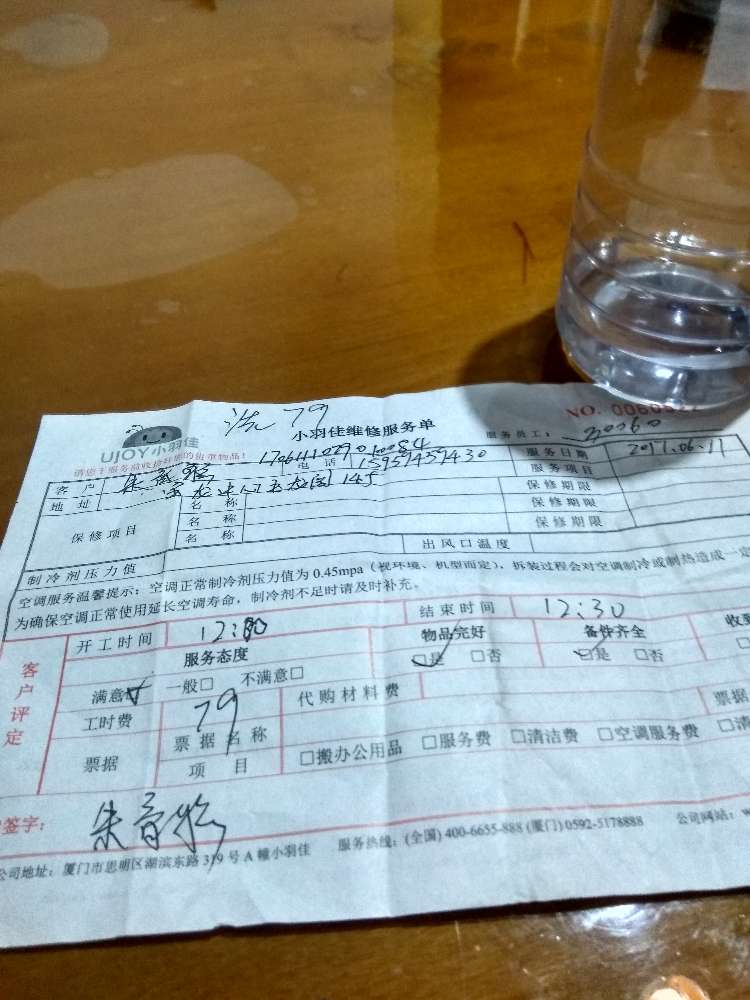 洗 79
NO. 00605
UJOY小羽佳
小羽佳维修服务单
服务员工：
请您于服务前收捡好您的贵重物品！
客 户
电 话 15959459430
服务日期 2017.06.11
地 址
服务项目
保修项目
名 称
保修期限
名 称
保修期限
名 称
保修期限
制冷剂压力值
出风口温度
空调服务温馨提示：空调正常制冷剂压力值为 0.45mpa（视环境、机型而定），拆装过程会对空调制冷或制热造成一定
为确保空调正常使用延长空调寿命，制冷剂不足时请及时补充。
客户评定
开工时间
结束时间 12:30
服务态度
物品完好
备件齐全
收到
满意□ 一般□ 不满意□
□是 □否
□是 □否
工时费 79
代购材料费
票据
票据名称
票据
项 目
□搬办公用品 □服务费 □清洁费 □空调服务费 □清
签字：
公司地址：厦门市思明区湖滨东路 319 号 A 幢小羽佳
服务热线：(全国) 400-6655-888 (厦门) 0592-5178888
公司网站：w